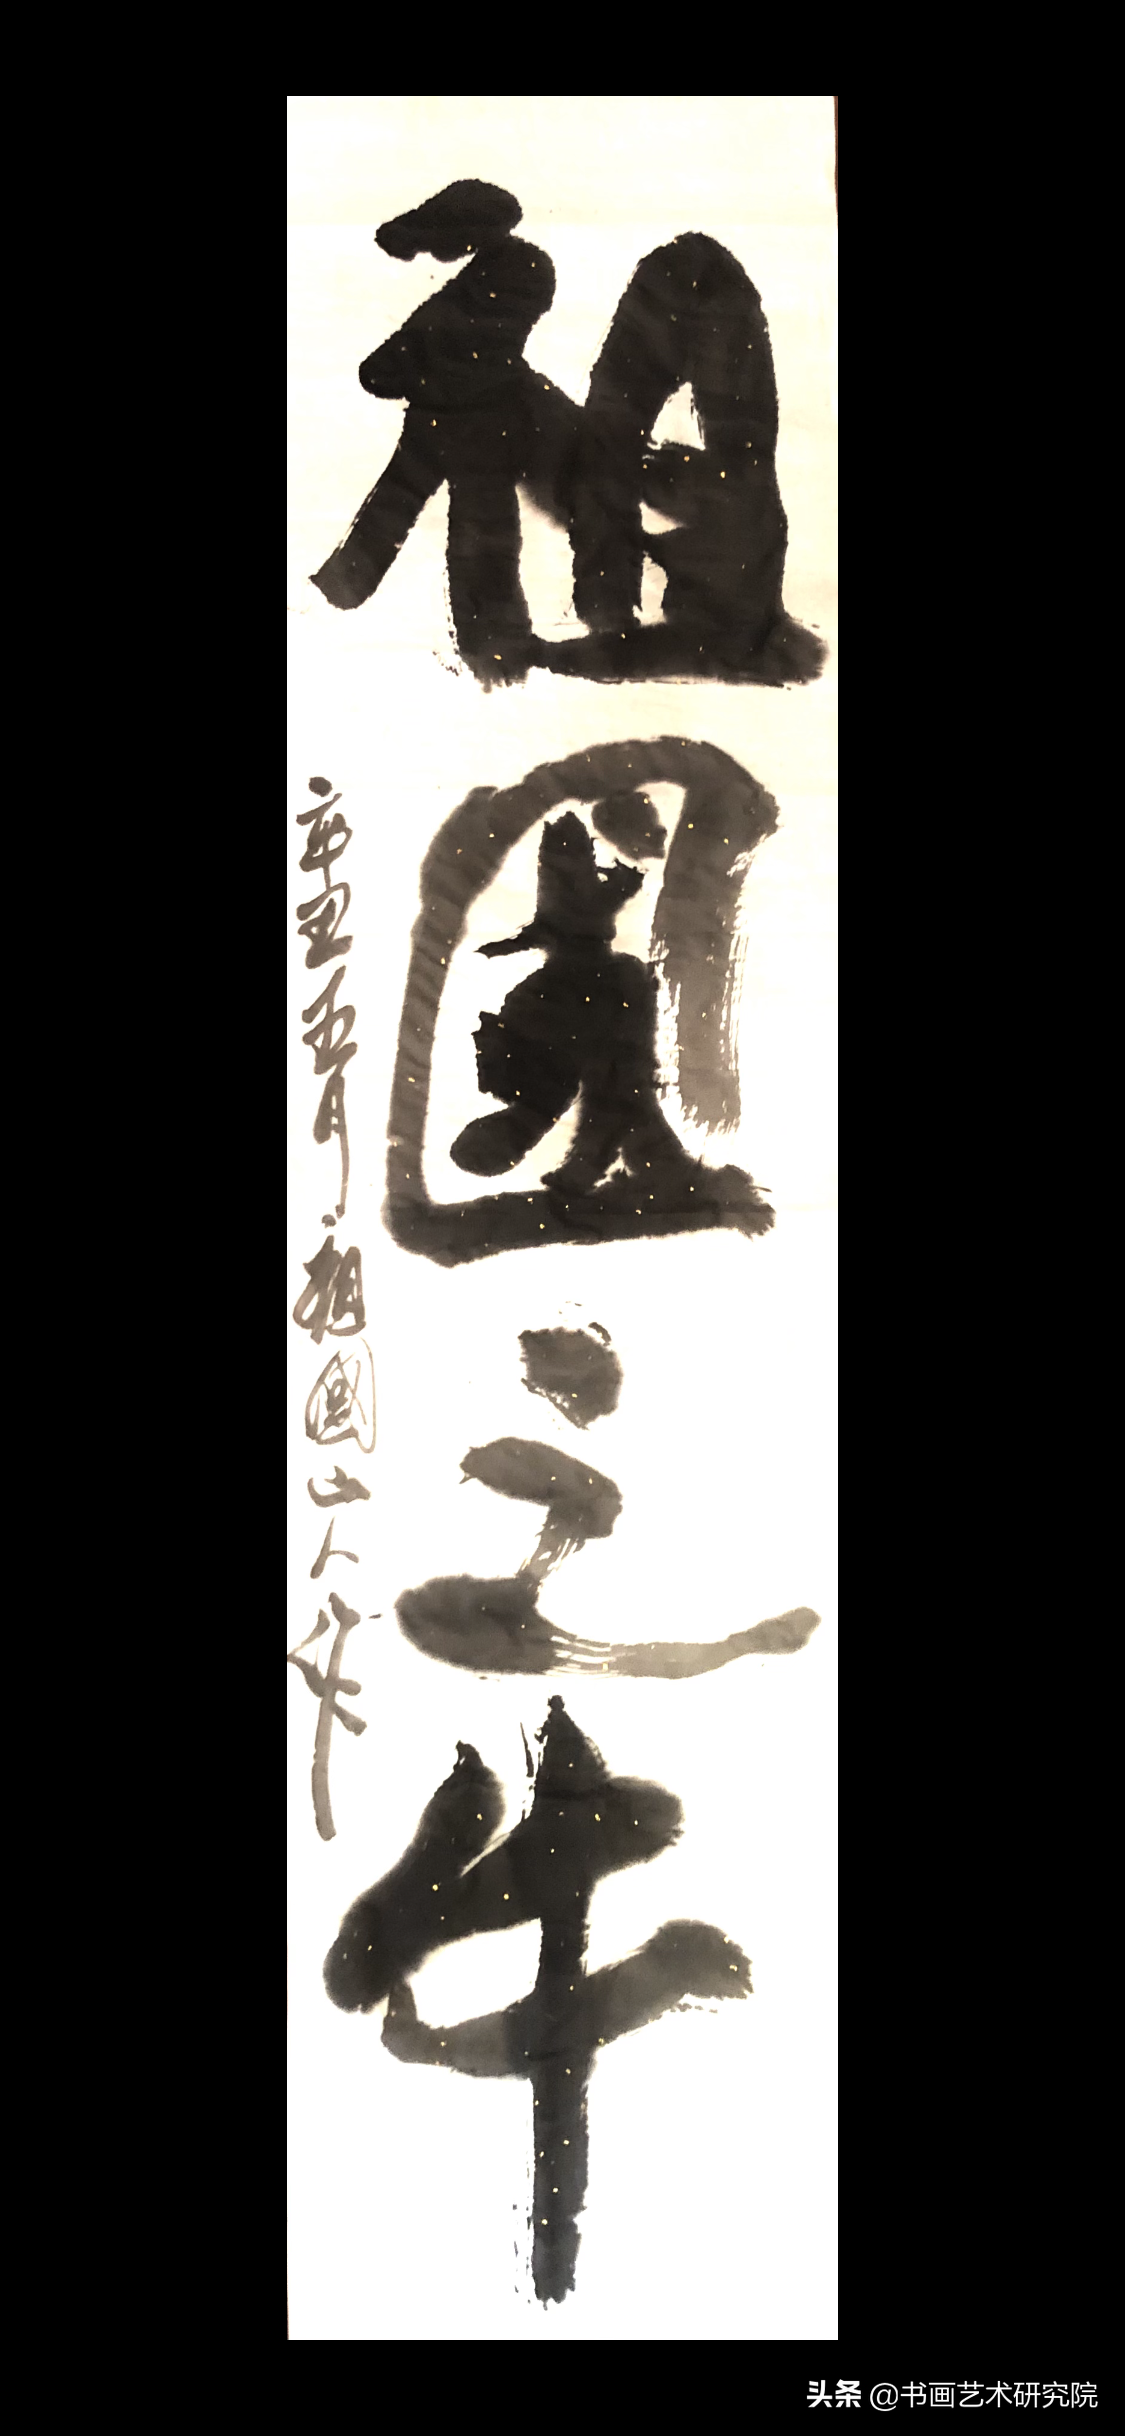 祖国之牛
辛丑五月祖國山人作
头条 @书画艺术研究院